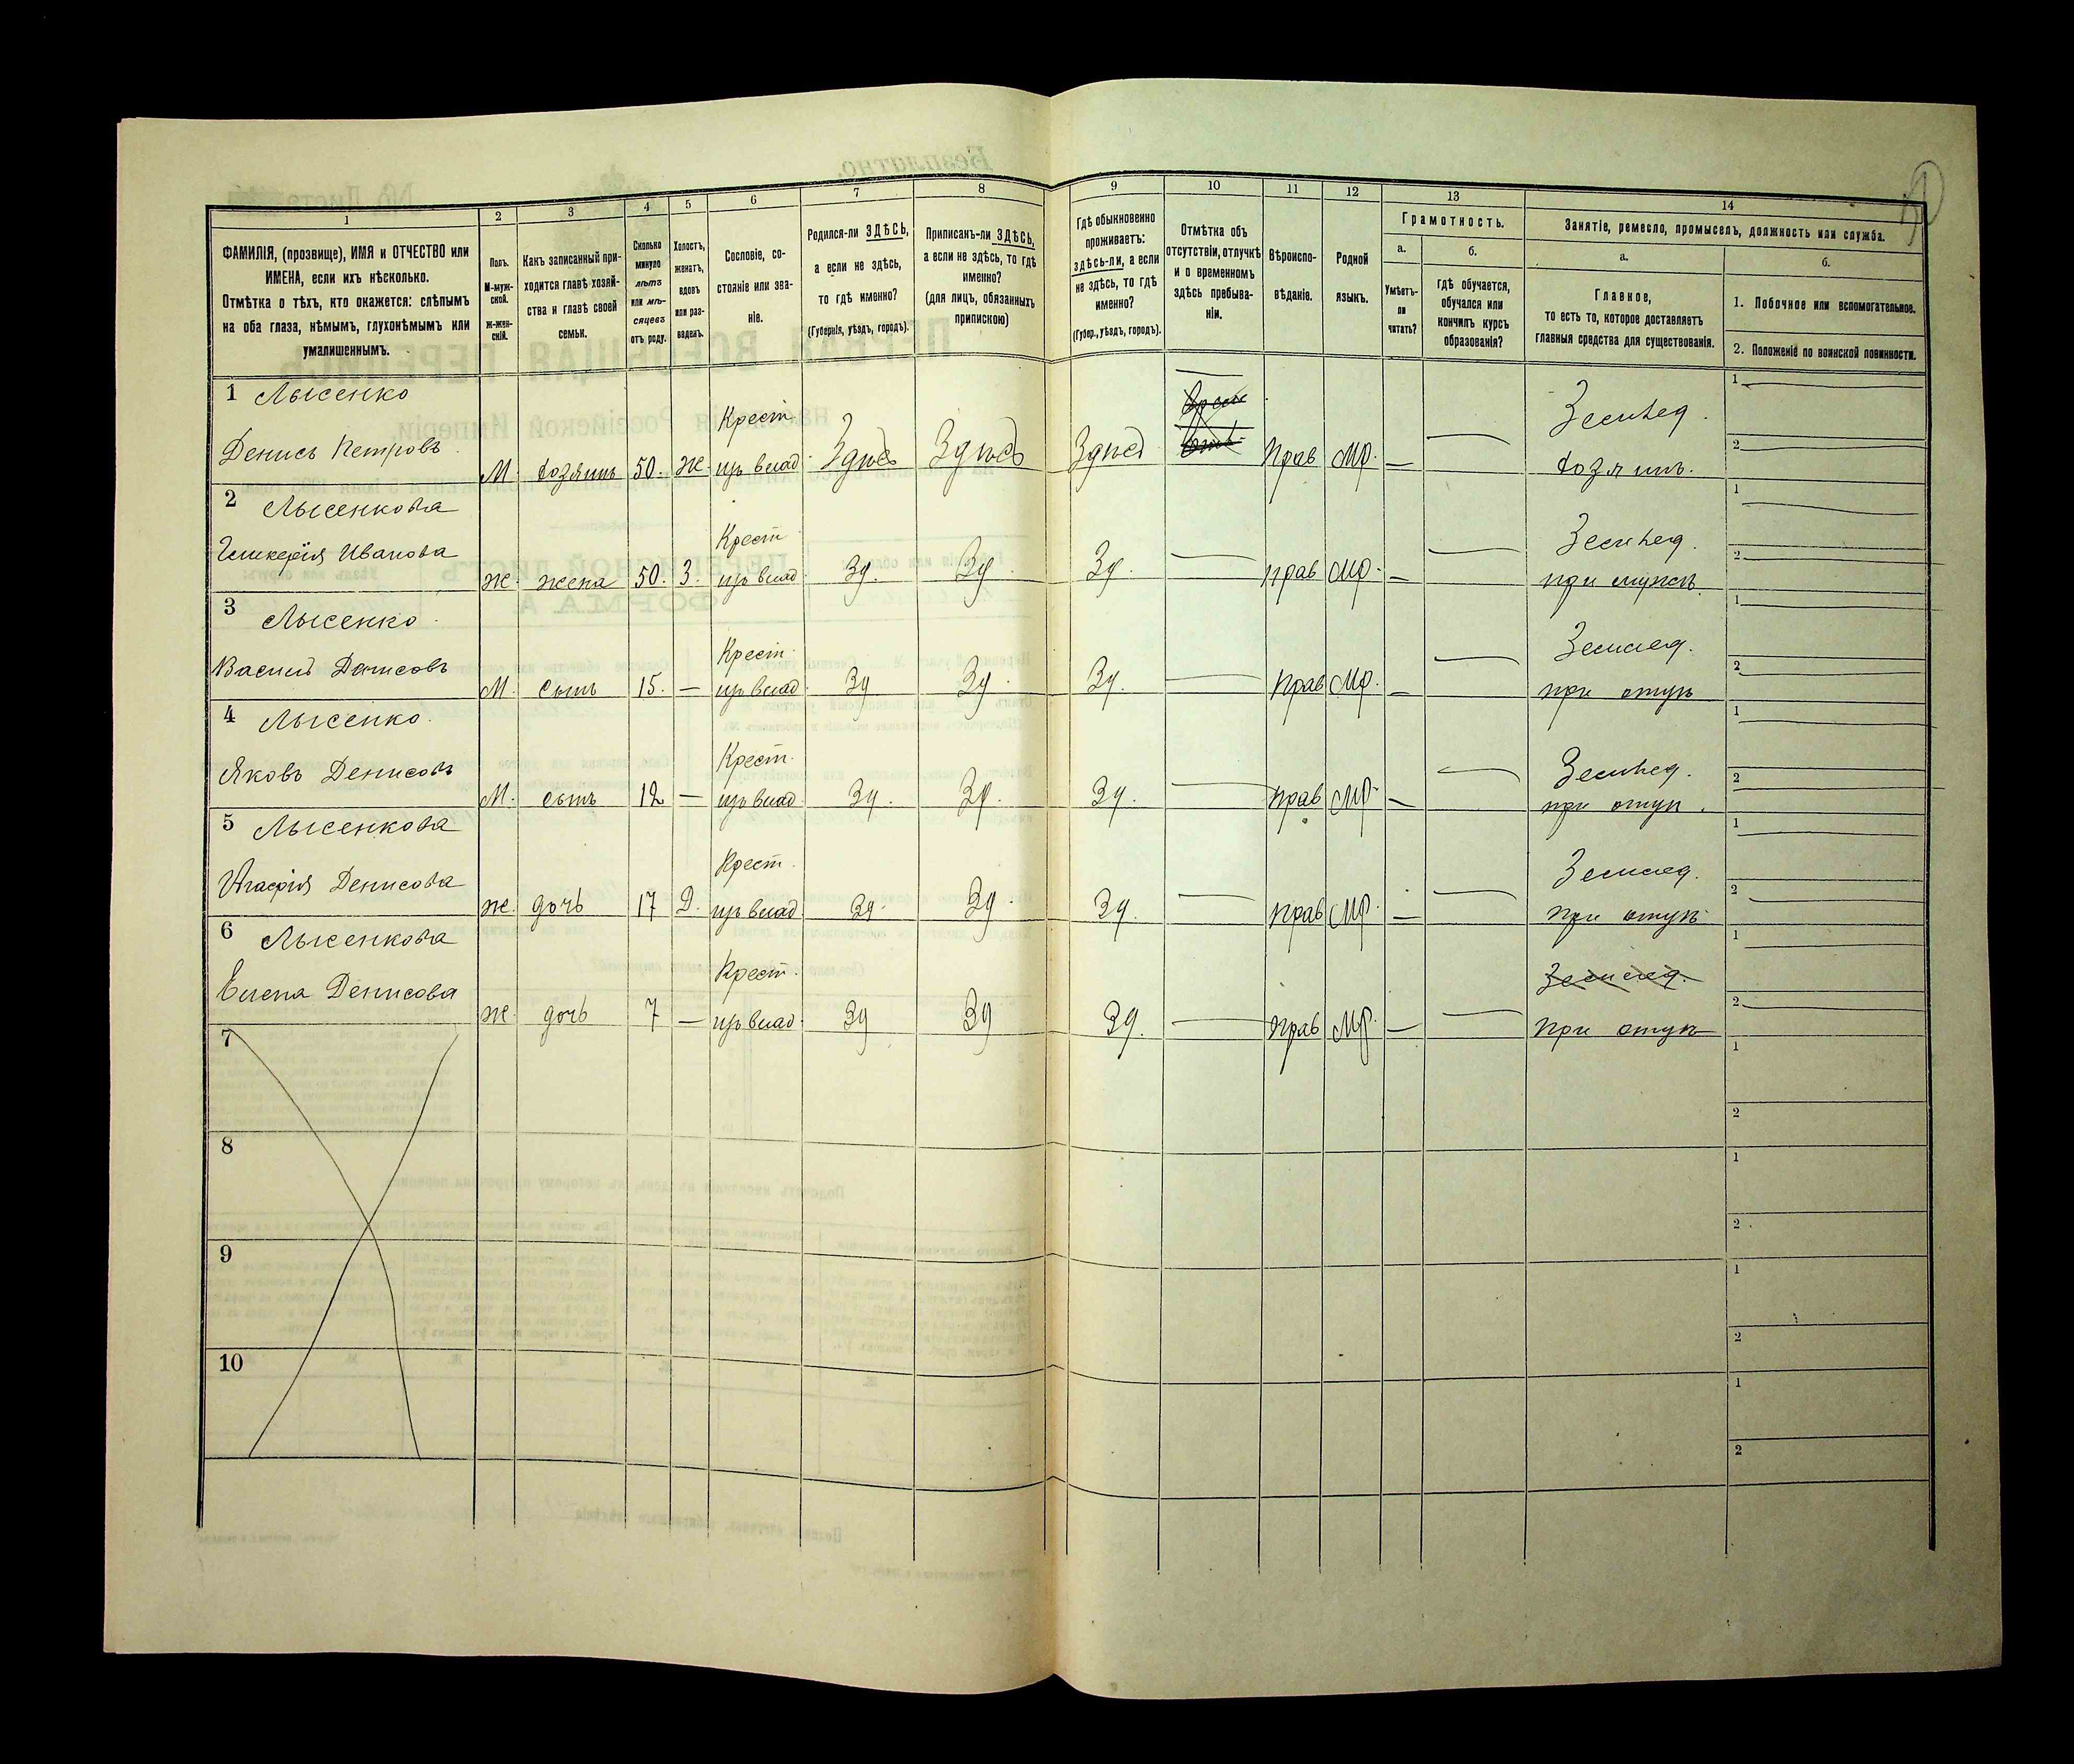 1 2 3 4 5 6 7 8 9 10 11 12 13 14
ФАМИЛІЯ, (прозвище), ИМЯ и ОТЧЕСТВО или
ИМЕНА, если ихъ нѣсколько.
Отмѣтка о тѣхъ, кто окажется: слѣпымъ
на оба глаза, нѣмымъ, глухонѣмымъ или
умалишеннымъ.
Полъ.
М-муж-
ской.
Ж-жен-
скій.
Какъ записанный при-
ходится главѣ хозяй-
ства и главѣ своей
семьи.
Сколько
минуло
лѣтъ
или мѣ-
сяцевъ
отъ роду.
Холостъ,
женатъ,
вдовъ
или раз-
веденъ.
Сословіе, со-
стояніе или зва-
ніе.
Родился-ли ЗДѢСЬ,
а если не здѣсь,
то гдѣ именно?
(Губернія, уѣздъ, городъ).
Приписанъ-ли ЗДѢСЬ,
а если не здѣсь, то гдѣ
именно?
(для лицъ, обязанныхъ
припискою)
Гдѣ обыкновенно
проживаетъ:
здѣсь-ли, а если
не здѣсь, то гдѣ
именно?
(Губер., уѣздъ, городъ).
Отмѣтка объ
отсутствіи, отлучкѣ
и о временномъ
здѣсь пребыва-
ніи.
Вѣроиспо-
вѣданіе.
Родной
языкъ.
Грамотность.
а.
Умѣетъ-
ли
читать?
б.
гдѣ обучается,
обучался или
кончилъ курсъ
образованія?
Занятіе, ремесло, промыселъ, должность или служба.
а.
Главное,
то есть то, которое доставляетъ
главныя средства для существованія.
б.
1. Побочное или вспомогательное.
2. Положеніе по воинской повинности.
1 Лысенко Крест. Землед. 1
Денисъ Петровъ М. хозяинъ 50. Ж. изъ влад. Здѣсь Здѣсь Здѣсь Прав Мр. — — хозяинъ. 2
2 Лысенкова Крест Землед. 1
Гликерія Иванова Ж. жена 50. З. изъ влад Зд. Зд. Зд. — прав Мр. — — при мужѣ. 2
3 Лысенко Крест. Землед. 1
Василій Денисовъ М. сынъ 15. — изъ влад Зд Зд. Зд. — Прав Мр. — — при отцѣ 2
4 Лысенко. Крест. Землед. 1
Яковъ Денисовъ М. сынъ 12 — изъ влад Зд. Зд. Зд. — прав Мр. — — при отцѣ. 2
5 Лысенкова Крест. Землед. 1
Агафія Денисова Ж. дочь 17 Д. изъ влад Зд. Зд. Зд. — прав Мр. — — при отцѣ 2
6 Лысенкова Крест. Землед. 1
Елена Денисова Ж. дочь 7 — изъ влад. Зд Зд Зд. — прав Мр. — — при отцѣ 2
7 1
2
8 1
2
9 1
2
10 1
2